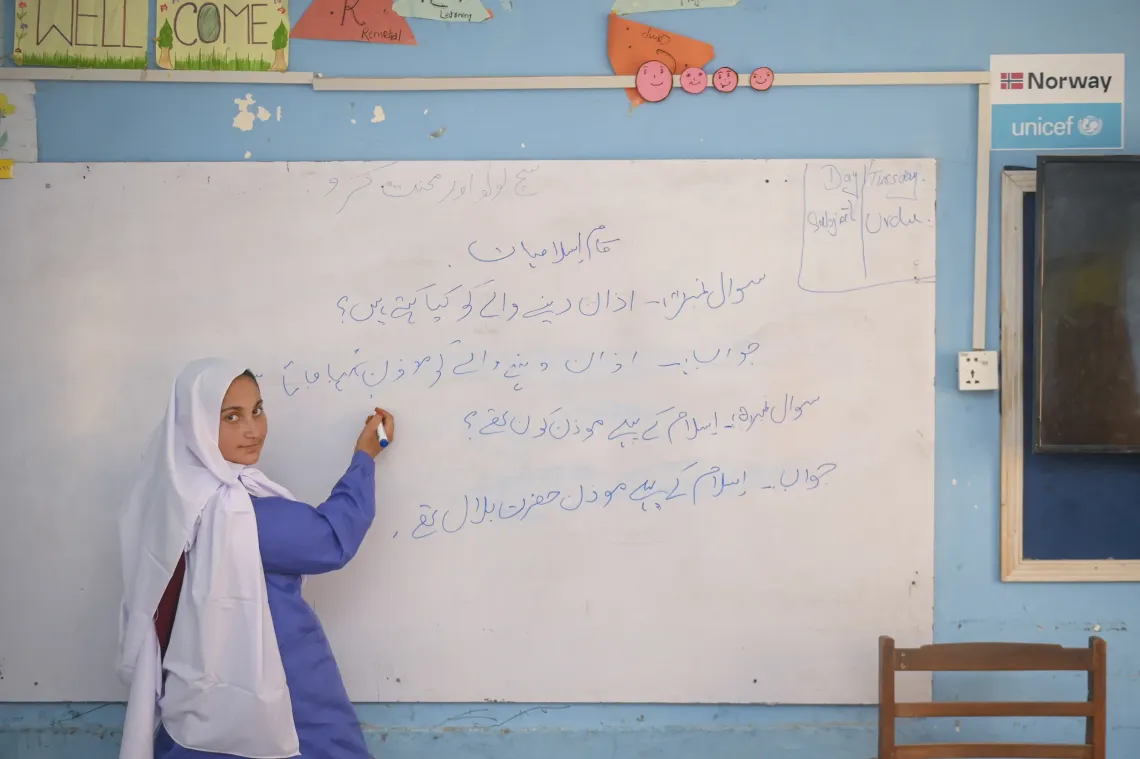 WELL COME
R
Remedial
Learning
Camp
Norway
unicef
سچ بولو اور محنت کرو
Day Tuesday.
Subject Urdu.
کام اسلامیات
سوال نمبر۱:۔ اذان دینے والے کو کیا کہتے ہیں؟
جواب:۔ اذان دینے والے کو موذن کہا جاتا
سوال نمبر۲:۔ اسلام کے پہلے موذن کون تھے؟
جواب:۔ اسلام کے پہلے موذن حضرت بلال تھے۔